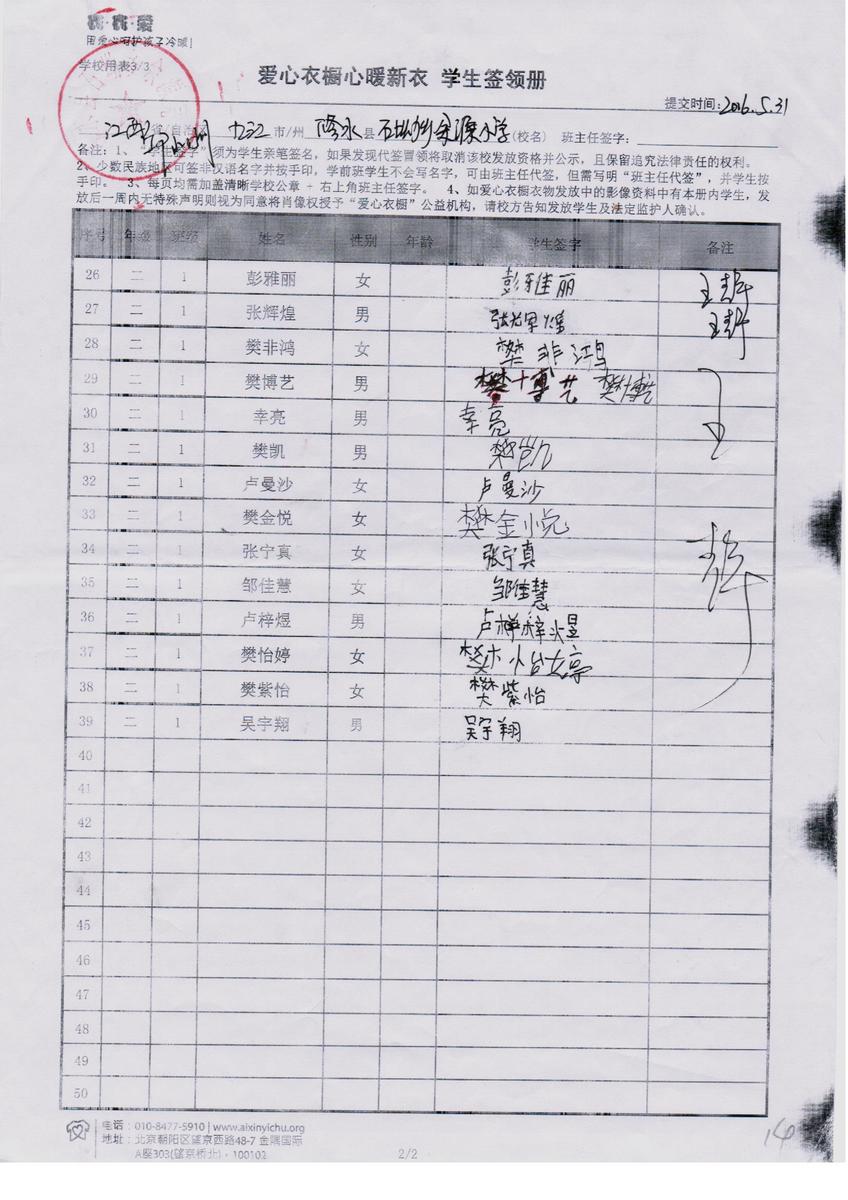 用爱心呵护孩子冷暖!
学校用表3/3
爱心衣橱心暖新衣 学生签领册
提交时间:2016.5.31
江西 九江 市/州 修水 县 小学(校名) 班主任签字:
备注:1、“学生签字”须为学生亲笔签名,如果发现代签冒领将取消该校发放资格并公示,且保留追究法律责任的权利。
2、少数民族地区可签非汉语名字并按手印,学前班学生不会写名字,可由班主任代签,但需写明“班主任代签”,并学生按
手印。 3、每页均需加盖清晰学校公章 + 右上角班主任签字。 4、如爱心衣橱衣物发放中的影像资料中有本册内学生,发
放后一周内无特殊声明则视为同意将肖像权授予“爱心衣橱”公益机构,请校方告知发放学生及法定监护人确认。
序号 年级 班级 姓名 性别 年龄 学生签字 备注
26 二 1 彭雅丽 女 彭雅丽
27 二 1 张辉煌 男 张辉煌
28 二 1 樊非鸿 女 樊非鸿
29 二 1 樊博艺 男 樊博艺 樊博艺
30 二 1 幸亮 男 幸亮
31 二 1 樊凯 男 樊凯
32 二 1 卢曼沙 女 卢曼沙
33 二 1 樊金悦 女 樊金悦
34 二 1 张宁真 女 张宁真
35 二 1 邹佳慧 女 邹佳慧
36 二 1 卢梓煜 男 卢梓煜
37 二 1 樊怡婷 女 樊怡婷
38 二 1 樊紫怡 女 樊紫怡
39 二 1 吴宇翔 男 吴宇翔
40
41
42
43
44
45
46
47
48
49
50
电话:010-8477-5910 | www.aixinyichu.org
地址:北京朝阳区望京西路48-7 金隅国际
A座303(望京桥北),100102
2/2
14